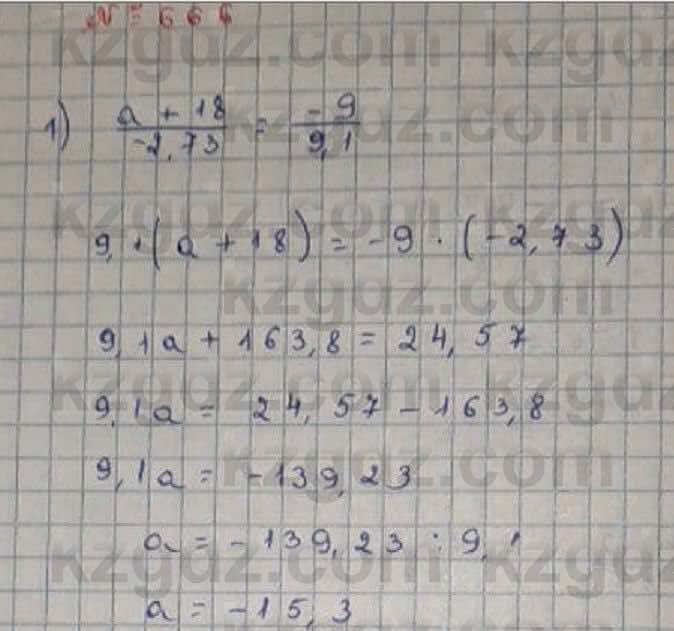 № = 666
kzgdz.com kzgdz.com
1) a + 18 / -2,73 = -9 / 9,1
9,1(a + 18) = -9 · (-2,73)
9,1a + 163,8 = 24,57
9,1a = 24,57 - 163,8
9,1a = -139,23
a = -139,23 : 9,1
a = -15,3